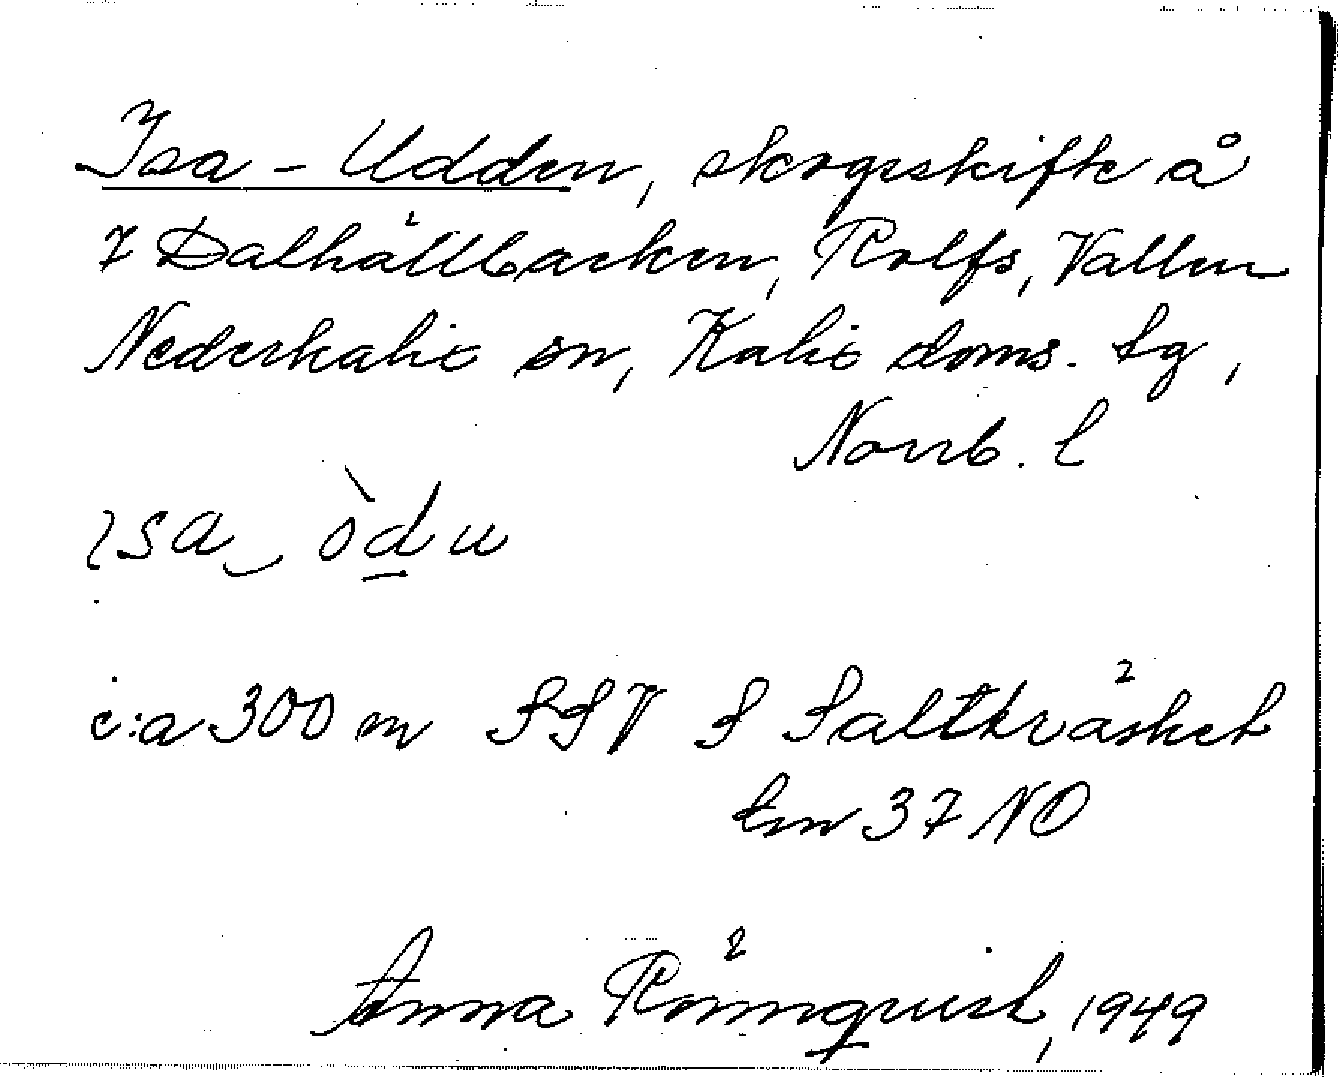 Isa-Udden, skogsskifte å
7 Dalhällbacken, Rolfs, Vallen
Nederkalix sn, Kalix doms. tg,
Norrb. l
ɩsa‿òd̲u
c:a 300 m SSV S Saltträsket
tm 37 NO
Anna Rönnquist, 1949